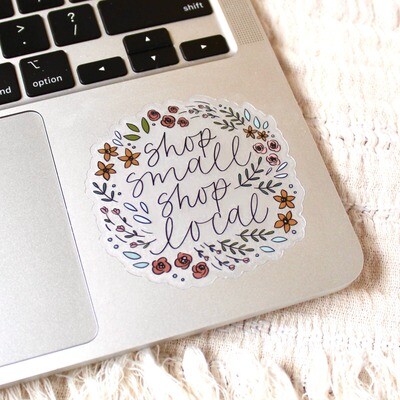 shift
>
.
?
/
option
shop
small
shop
local